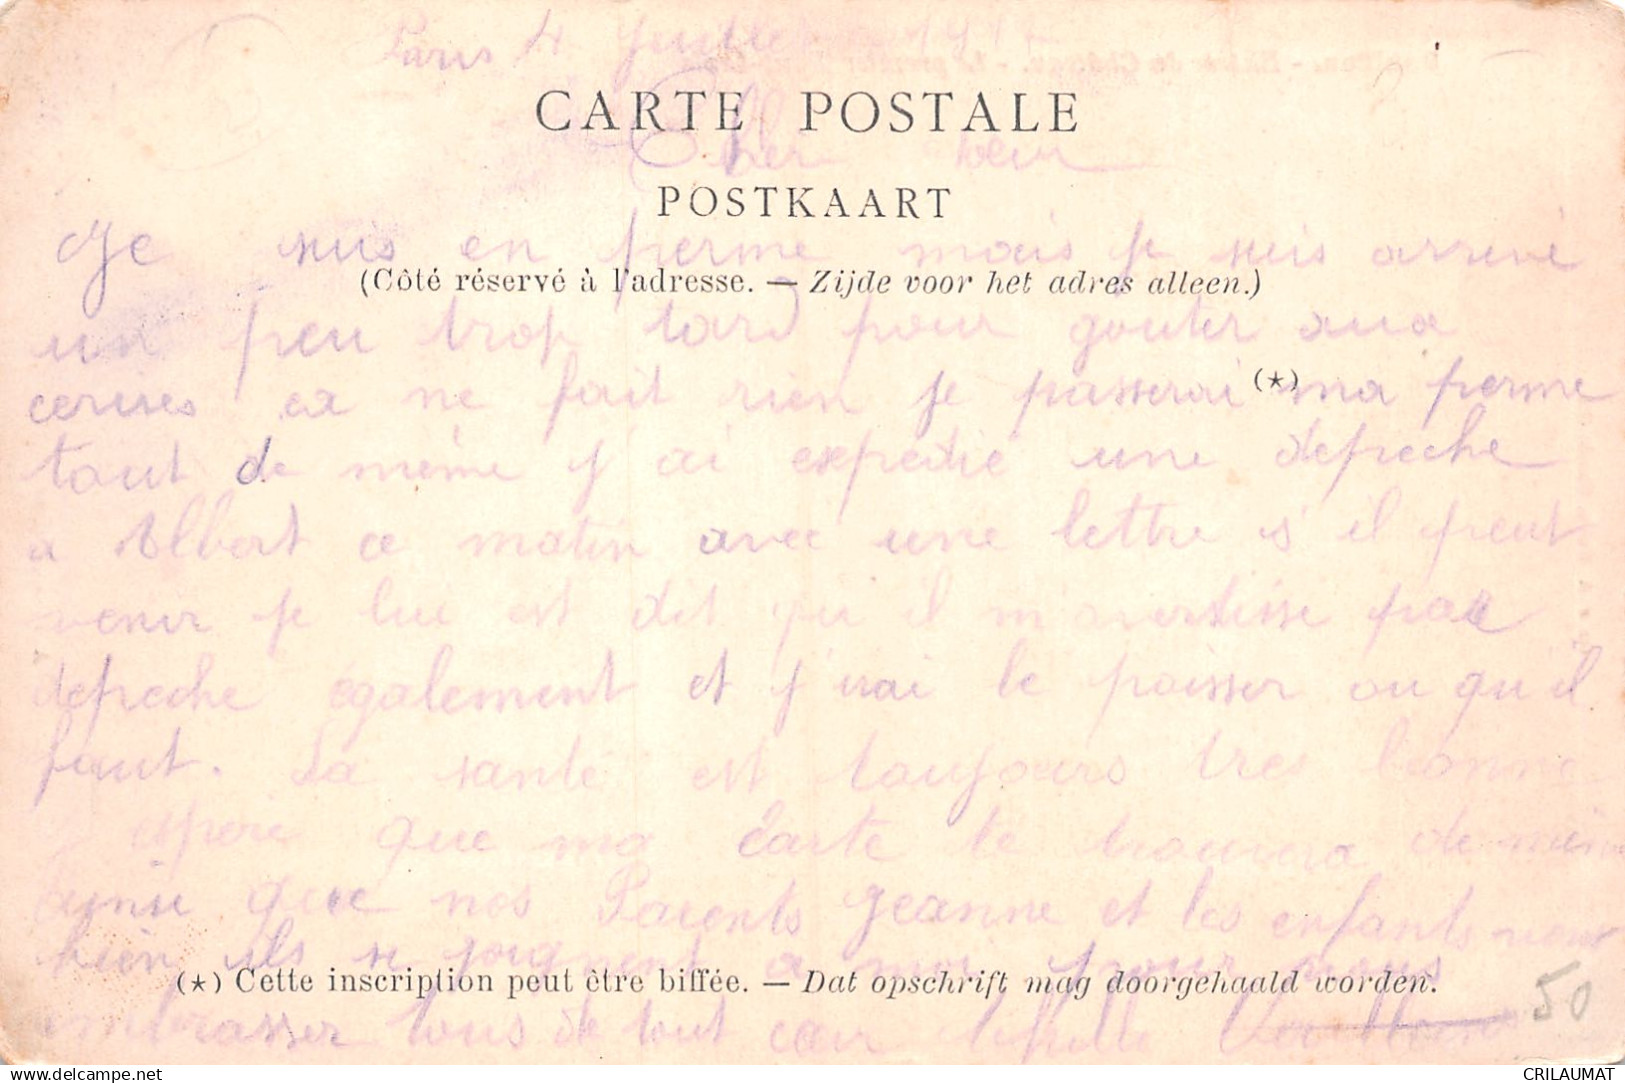 Paris 4 Juillet 191
CARTE POSTALE
Cher
POSTKAART
Je suis en perme mais je suis arrivé
(Côté réservé à l'adresse. — Zijde voor het adres alleen.)
un peu trop tard pour gouter aux
cerises ca ne fait rien je passerai (*) ma perme
tout de même j ai expedié une depeche
a Albert ce matin avec une lettre s'il peut
venir je lui est dit qu il m'avertisse par
depeche également et j irai le
faut. La santé est toujours tres bonne
espere que ma carte te trouvera de même
ainsi que nos Parents Jeanne et les enfants
bien ils se
(*) Cette inscription peut être biffée. — Dat opschrift mag doorgehaald worden.
embrasser tous de tout cœur
50
CRILAUMAT